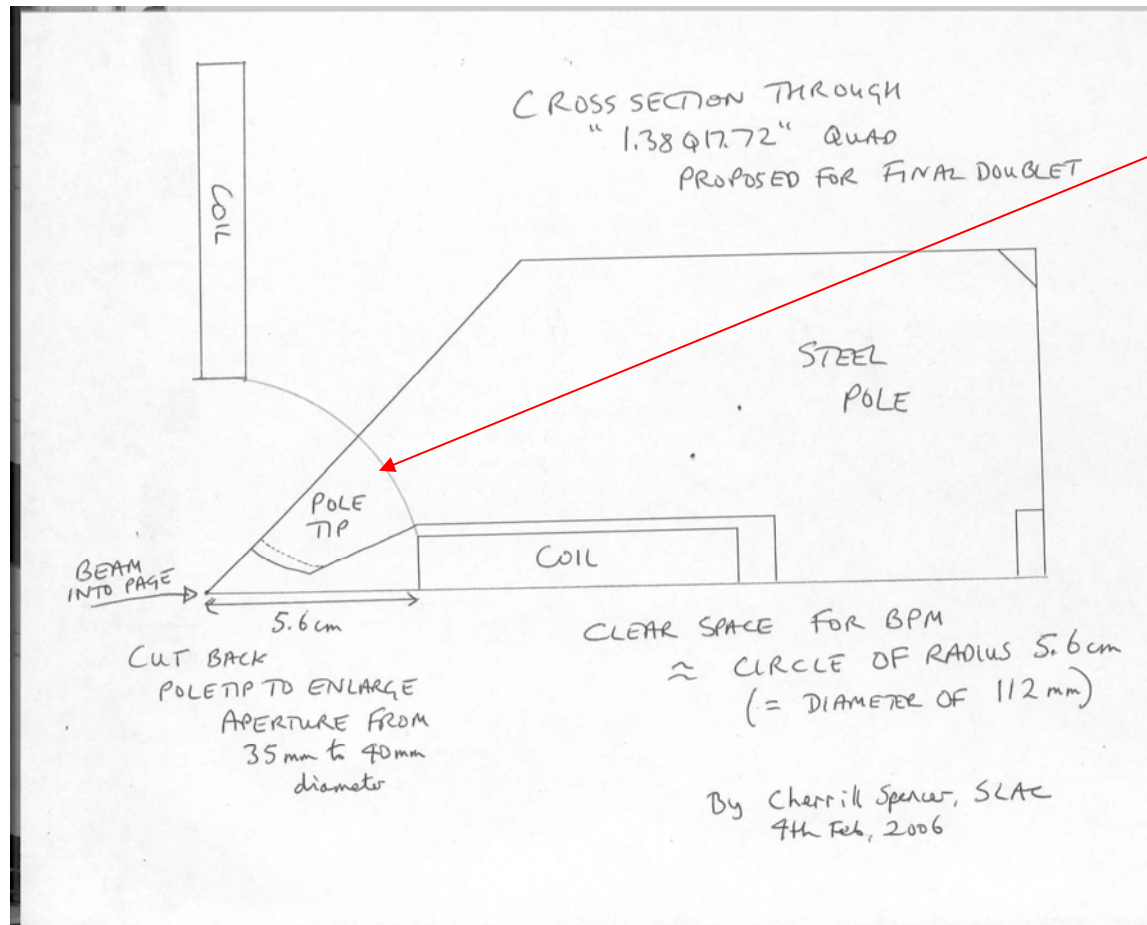 CROSS SECTION THROUGH
"1.38Q17.72" QUAD
PROPOSED FOR FINAL DOUBLET
COIL
STEEL
POLE
POLE
TIP
COIL
BEAM
INTO PAGE
5.6cm
CUT BACK
POLETIP TO ENLARGE
APERTURE FROM
35mm to 40mm
diameter
CLEAR SPACE FOR BPM
≈ CIRCLE OF RADIUS 5.6cm
(= DIAMETER OF 112mm)
By Cherrill Spencer, SLAC
4th Feb, 2006